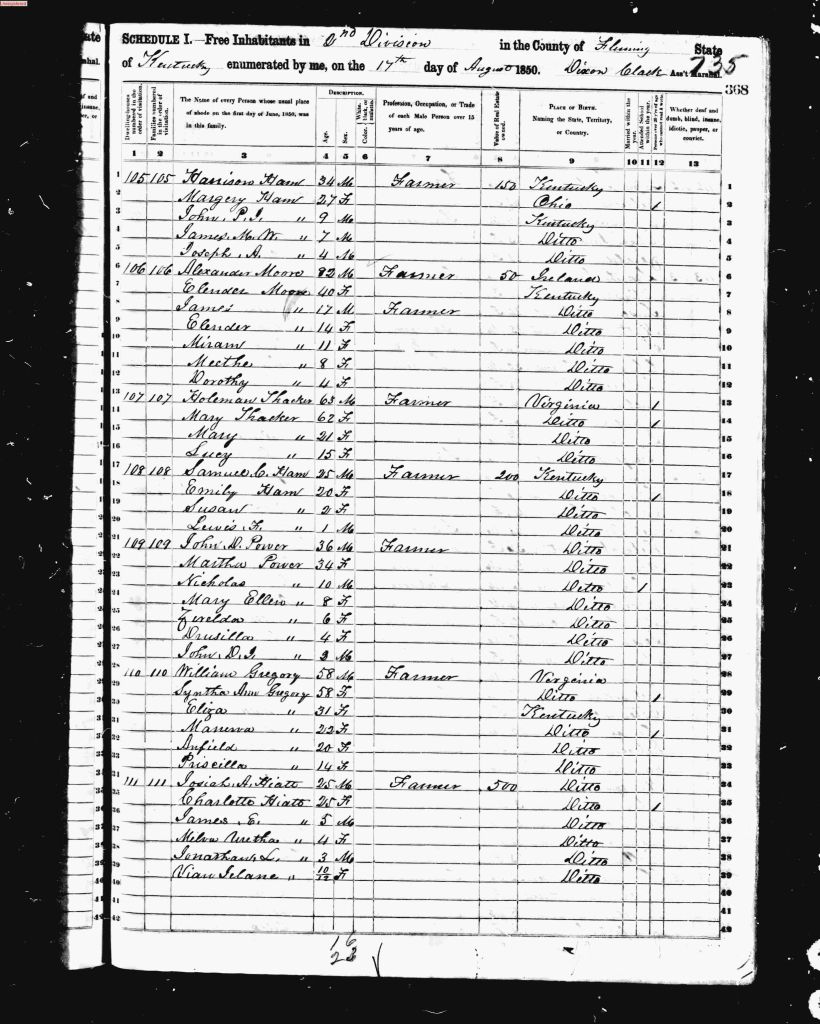 SCHEDULE I.—Free Inhabitants in 2nd Division in the County of Fleming State
of Kentucky enumerated by me, on the 17th day of August 1850. Dixon Clack Ass't Marshal.
735
368
Dwelling-houses numbered in the order of visitation.
Families numbered in the order of visitation.
The Name of every Person whose usual place of abode on the first day of June, 1850, was in this family.
DESCRIPTION.
Age.
Sex.
Color.
Profession, Occupation, or Trade of each Male Person over 15 years of age.
Value of Real Estate owned.
PLACE OF BIRTH. Naming the State, Territory, or Country.
Married within the year.
Attended School within the year.
Whether deaf and dumb, blind, insane, idiotic, pauper, or convict.
1 2 3 4 5 6 7 8 9 10 11 12 13
1 105 105 Harrison Ham 34 M Farmer 150 Kentucky 1
2 Margery Ham 27 F Ohio 1 2
3 John P. J. " 9 M Kentucky 3
4 James M. W. " 7 M Ditto 4
5 Joseph A. " 4 M Ditto 5
6 106 106 Alexander Moore 82 M Farmer 50 Ireland 6
7 Elender Moore 40 F Kentucky 7
8 James " 17 M Farmer Ditto 8
9 Elender " 14 F Ditto 9
10 Miram " 11 F Ditto 10
11 " 8 F Ditto 11
12 Dorothy " 4 F Ditto 12
13 107 107 Holeman Thacker 63 M Farmer Virginia 1 13
14 Mary Thacker 62 F Ditto 1 14
15 Mary " 21 F Ditto 15
16 Lucy " 15 F Ditto 16
17 108 108 Samuel C. Ham 25 M Farmer 200 Kentucky 17
18 Emily Ham 20 F Ditto 1 18
19 Susan " 2 F Ditto 19
20 Lewis F. " 1 M Ditto 20
21 109 109 John D. Power 36 M Farmer Ditto 21
22 Martha Power 34 F Ditto 22
23 Nicholas " 10 M Ditto 1 23
24 Mary Ellen " 8 F Ditto 24
25 " 6 F Ditto 25
26 Drusilla " 4 F Ditto 26
27 John D. J. " 2 M Ditto 27
28 110 110 William Gregory 58 M Farmer Virginia 28
29 Syntha Ann Gregory 58 F Ditto 1 29
30 Eliza " 31 F Kentucky 30
31 Manerva " 22 F Ditto 1 31
32 Anfield " 20 F Ditto 32
33 Priscilla " 14 F Ditto 33
34 111 111 Josiah A. Hiatt 25 M Farmer 500 Ditto 34
35 Charlotte Hiatt 25 F Ditto 1 35
36 James E. " 5 M Ditto 36
37 Melva Uretha " 4 F Ditto 37
38 Jonathan L. " 3 M Ditto 38
39 Vian " 10/12 F Ditto 39
40 40
41 41
42 42
16
23